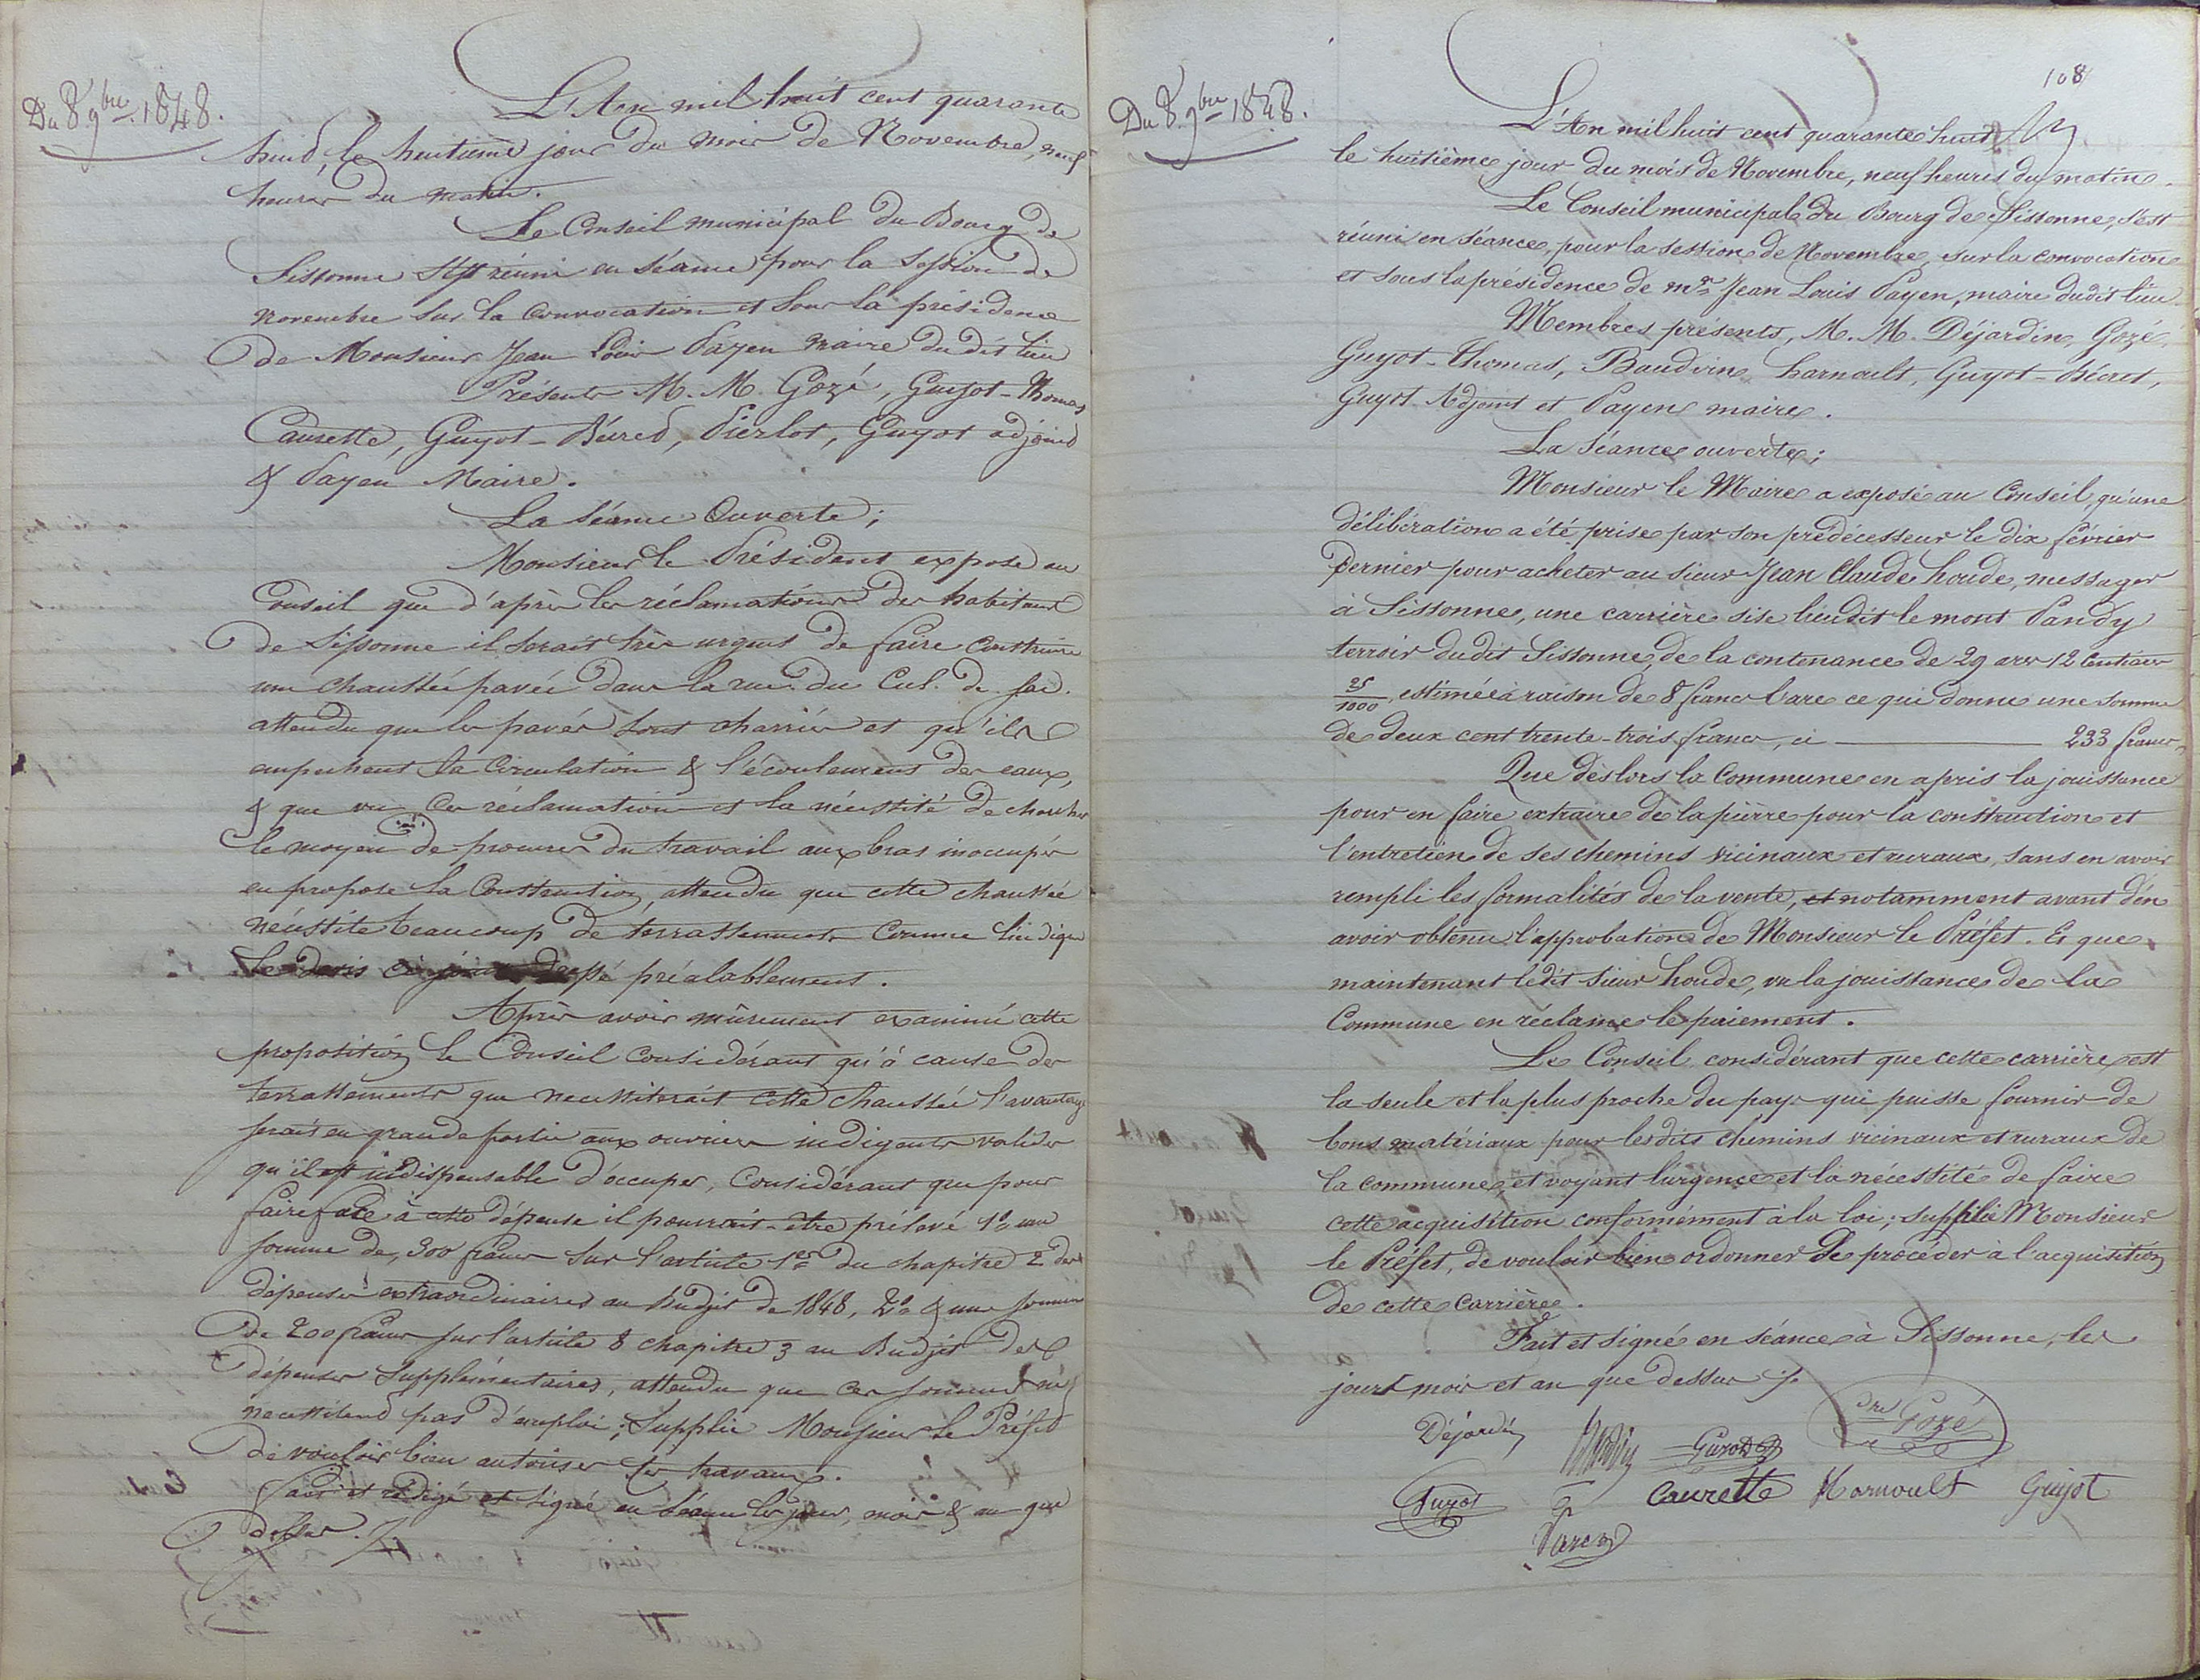 Du 8 9bre. 1848.
L'An mil huit cent quarante
huit, le huitième jour du mois de Novembre, neuf
heures du matin.
Le Conseil municipal du Bourg de
Sissonne s'est réuni en séance pour la session de
novembre sur la convocation et sous la présidence
de Monsieur Jean Louis Payen maire du dit lieu
Présents M. M. Gozé, Guyot-Thomas
Caurette, Guyot-Décret, Pierlot, Guyot adjoint
& Payen Maire.
La séance Ouverte ;
Monsieur le Président expose au
Conseil que d'après les réclamations des habitans
de Sissonne il serait très urgent de faire construire
une chaussée pavée dans la rue du Cul. de. sac.
attendu que les pavés sont charriés et qu'ils
empêchent la circulation & l'écoulement des eaux,
& que vu ces réclamations et la nécessité de chercher
le moyen de procurer du travail aux bras inoccupés
en propose la Construction, attendu que cette chaussée
nécessite beaucoup de terrassements comme l'indique
le devis ci-joint dressé préalablement.
Après avoir mûrement examiné cette
proposition le Conseil considérant qu'à cause des
terrassements que necessiterait cette chaussée l'avantage
serait en grande partie aux ouvriers indigents valides
qu'il est indispensable d'occuper, considérant que pour
faire face à cette dépense il pourrait-être prélevé 1° une
somme de, 300 francs sur l'article 1er du chapitre 2 des
dépenses extraordinaires au budjet de 1848, 2° & une somme
de 200 francs sur l'article 8 chapitre 3 au Budjet des
dépenses supplémentaires, attendu que ces sommes ne
necessitend pas d'emploi ; Supplie Monsieur le Préfet
de vouloir bien autoriser les travaux.
Fait et rédigé et signé en séance les jour, mois & an que
dessus ./.
108
Du 8. 9bre 1848.
L'An mil huit cent quarante huit
le huitième jour du mois de Novembre, neuf heures du matin.
Le Conseil municipal du Bourg de Sissonne, s'est
réuni en séance, pour la session de Novembre, sur la convocation
et sous la présidence de mr Jean Louis Payen, maire dudit lieu
Membres présents, M. M. Déjardin, Gozé,
Guyot-Thomas, Baudvin, harnoult, Guyot-Décret,
Guyot Adjoint et Payen maire.
La Séance ouverte ;
Monsieur le Maire a exposé au Conseil, qu'une
délibération a été prise par son prédécesseur le dix février
Dernier pour acheter au sieur Jean Claude houde, messager
à Sissonne, une carrière sise lieudit le mont Pandy
terroir dudit Sissonne, de la contenance de 29 ares 12 Centiares
25/1000, estimée à raison de 8 francs l'are ce qui donne une somme
de deux cent trente-trois francs, ci 233 francs.
Que dès lors la Commune en a pris la jouissance
pour en faire extraire de la pierre pour la construction et
l'entretien de ses chemins vicinaux et ruraux, sans en avoir
rempli les formalités de la vente, et notamment avant d'en
avoir obtenu l'approbation de Monsieur le Préfet. Et que
maintenant ledit sieur houde, vu la jouissance de la
Commune en réclame le paiement.
Le Conseil considérant que cette carrière est
la seule et la plus proche du pays qui puisse fournir de
bons matériaux pour lesdits chemins vicinaux et ruraux de
la commune, et voyant l'urgence et la nécessité de faire
cette acquisition conformément à la loi ; supplie Monsieur
le Préfet, de vouloir bien ordonner de procéder à l'acquisition
de cette carrière.
Fait et signé en séance à Sissonne, les
jours mois et an que dessus ./.
Déjardin Guyot Gozé
Guyot Caurette Harnoult Guyot
Payen